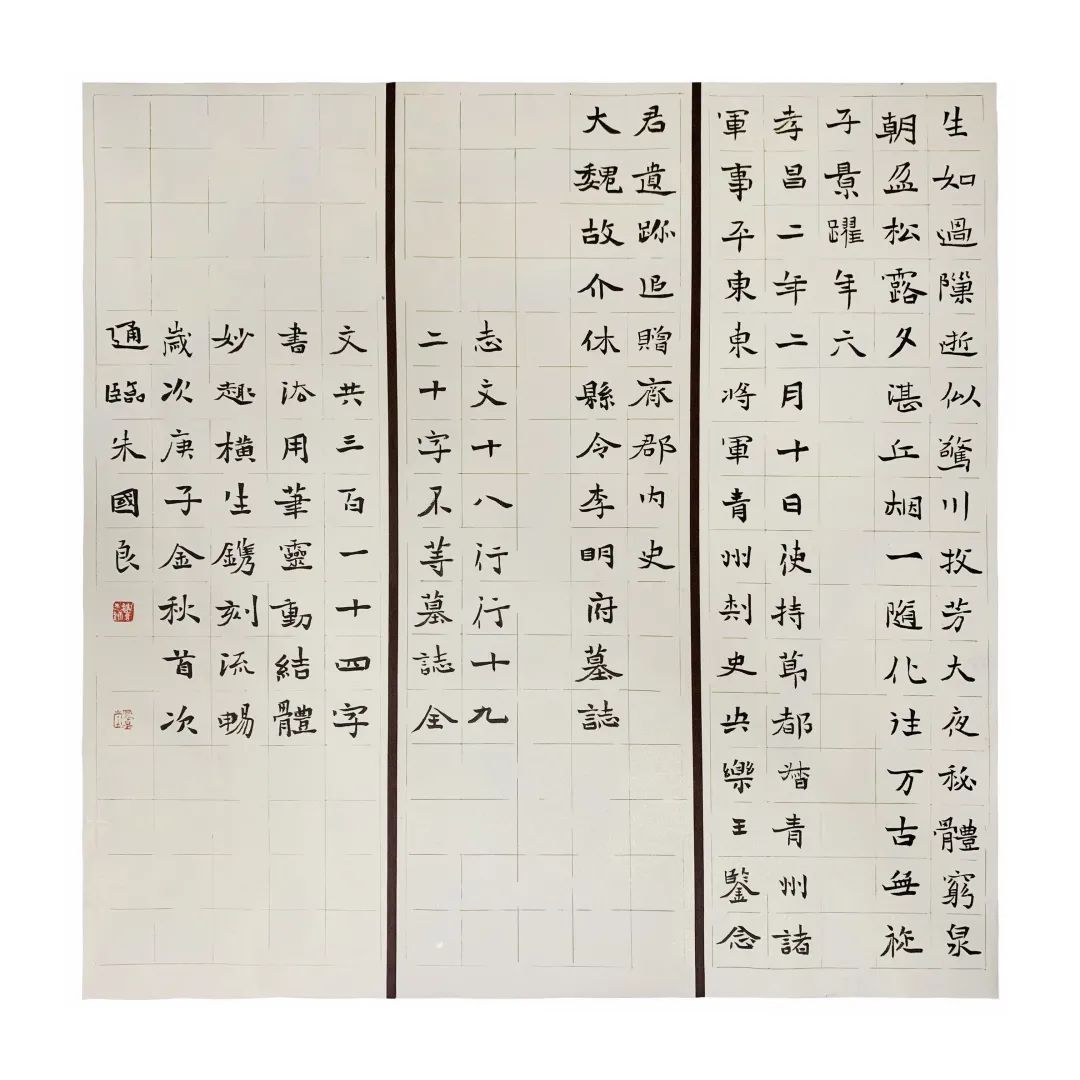 生如過隟逝似驚川收芳大夜秘體窮泉
朝盈松露夕湛丘烟一隨化往万古無
子景躍年六
孝昌二年二月十日使持節都督青州諸
軍事平東東將軍青州刺史安樂王鑒念
君遺跡追贈齊郡内史
大魏故介休縣令李明府墓誌
志文十八行行十九
二十字不等墓誌全
文共三百一十四字
書法用筆靈動結體
妙趣橫生鐫刻流暢
歲次庚子金秋首次
通臨朱國良